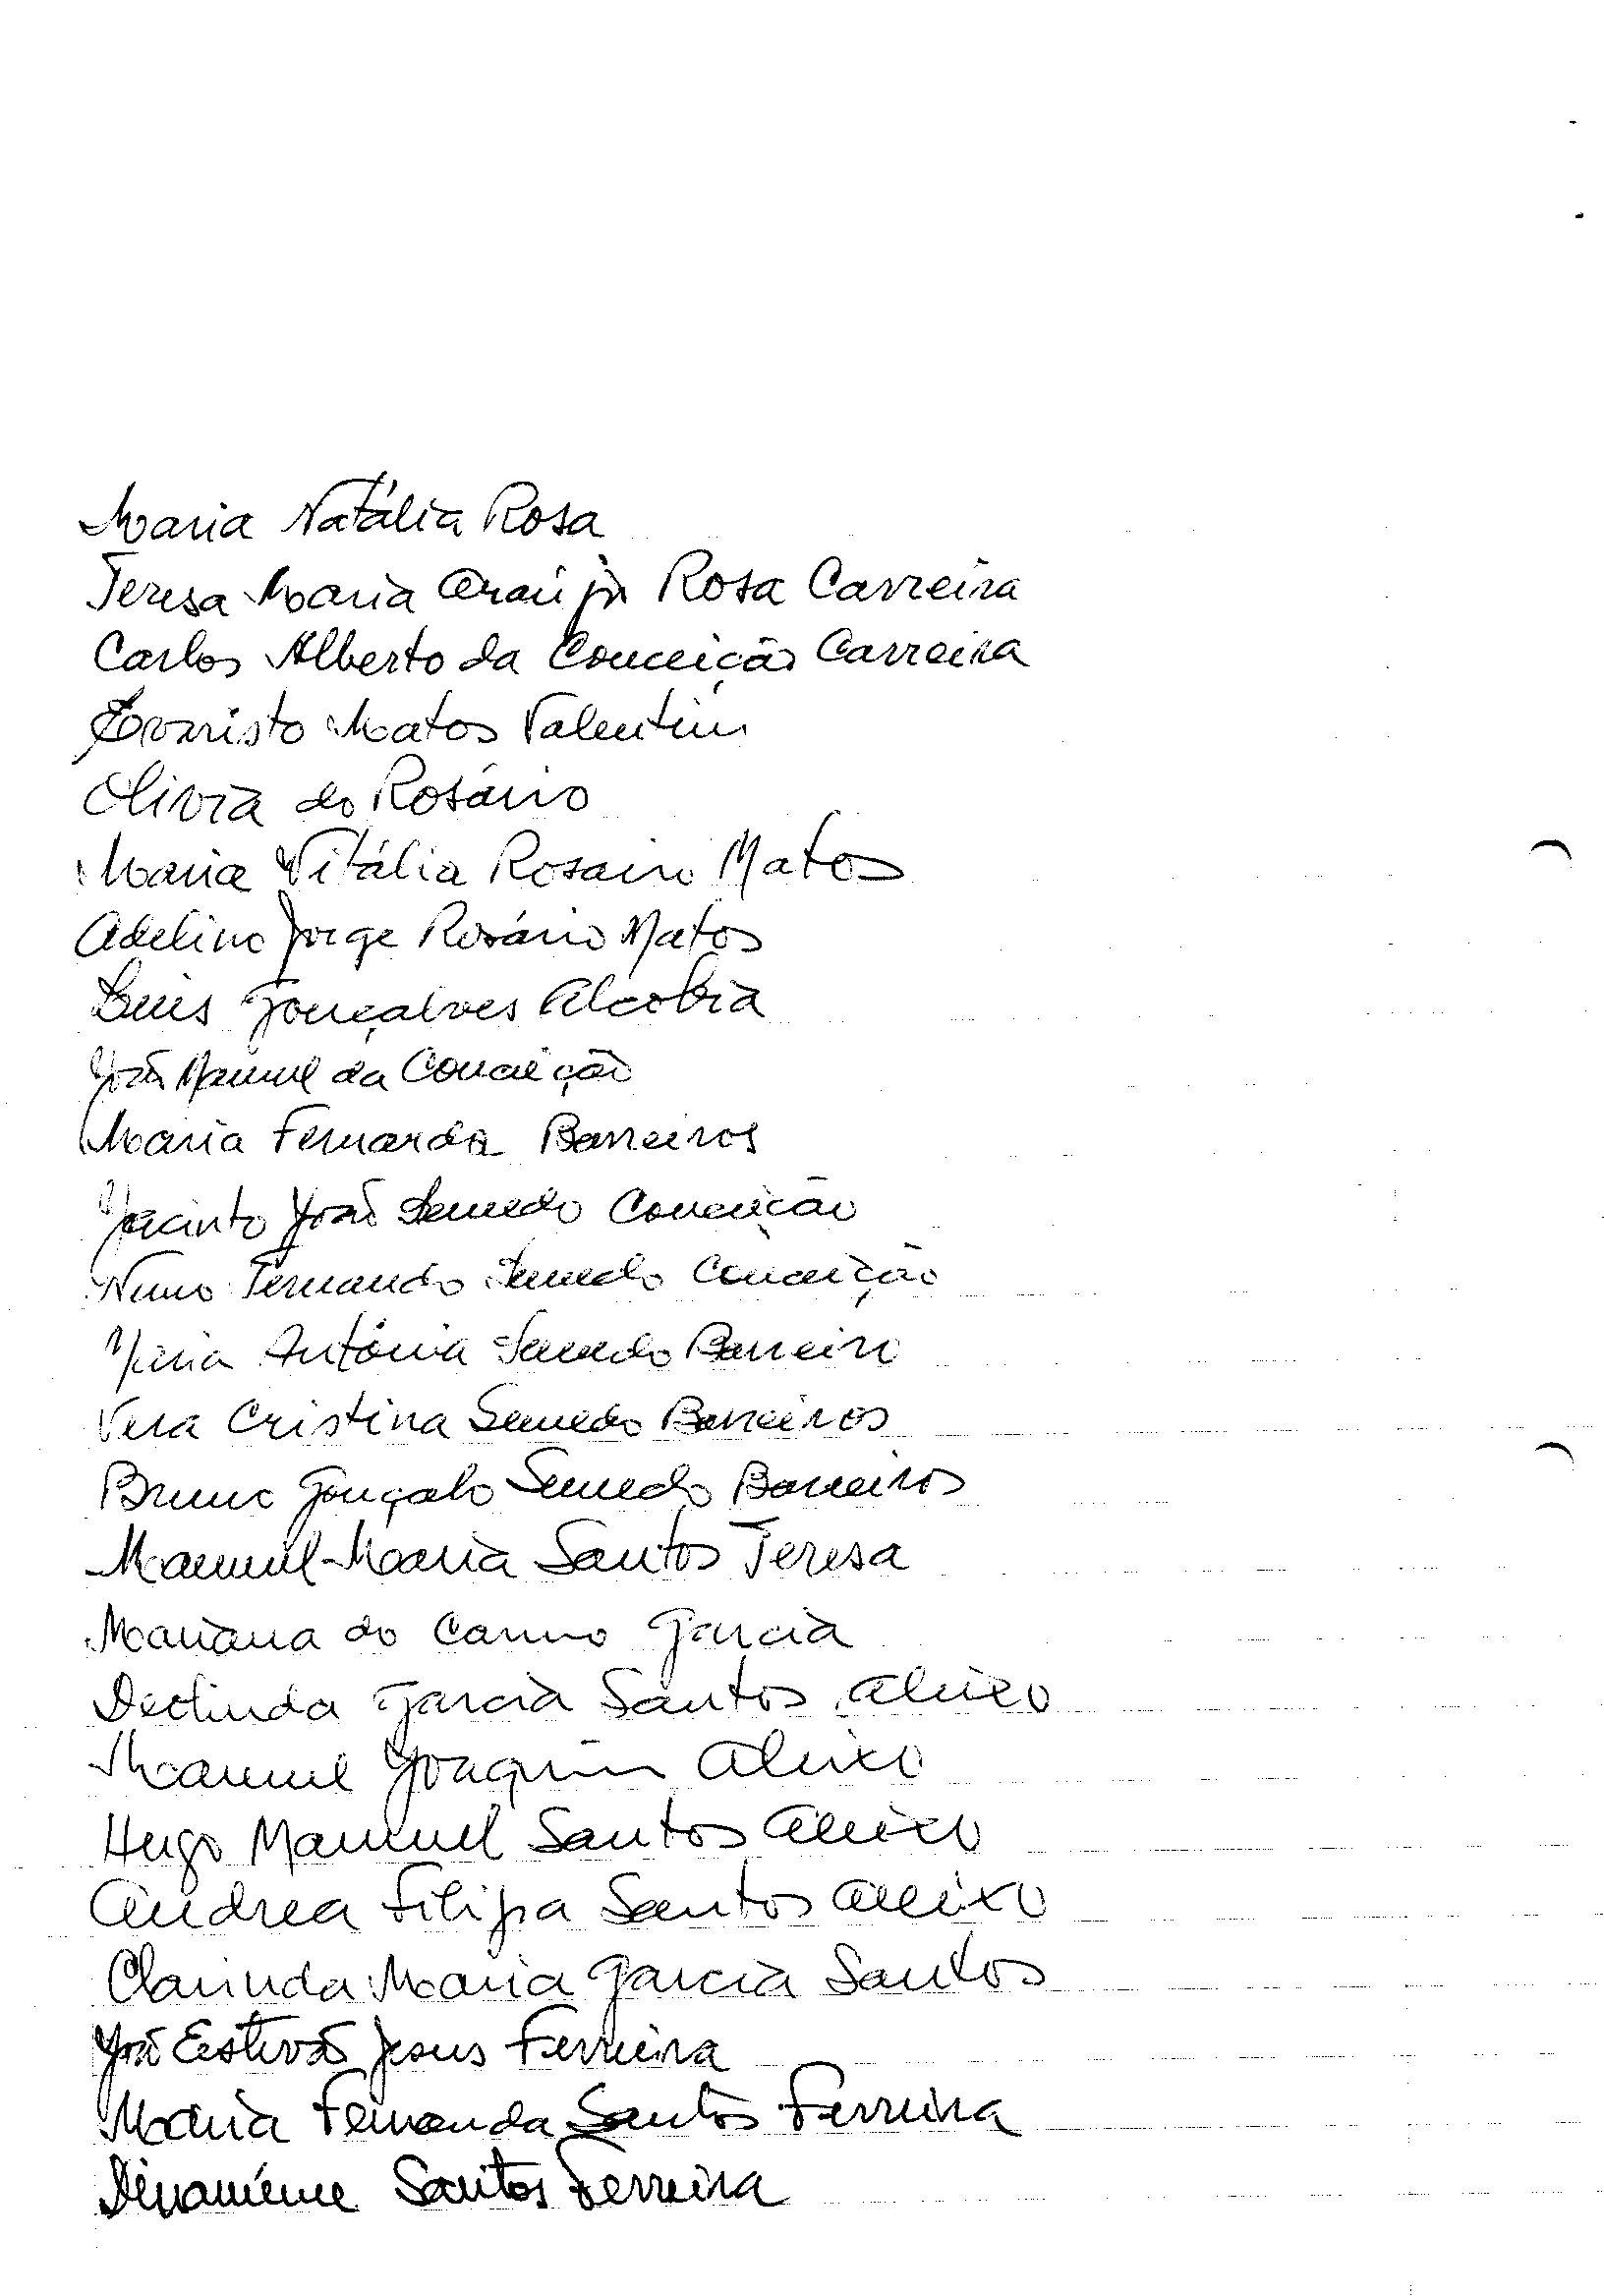 Maria Natália Rosa
Teresa Maria Araújo Rosa Carreira
Carlos Alberto da Conceição Carreira
Evaristo Matos Valentim
Olivia do Rosário
Maria Vitália Rosairo Matos
Adelino Jorge Rosário Matos
Luis Gonçalves Alcobia
João Manuel da Conceição
Maria Fernanda Barreiros
Jacinto João Semedo Conceição
Nuno Fernando Semedo Conceição
Maria Antónia Semedo Barreiro
Vera Cristina Semedo Barreiros
Bruno Gonçalo Semedo Barreiros
Manuel Maria Santos Teresa
Mariana do Carmo Garcia
Deolinda Garcia Santos Aleixo
Manuel Joaquim Aleixo
Hugo Manuel Santos Aleixo
Andrea Filipa Santos Aleixo
Clarinda Maria Garcia Santos
João Estevão Jesus Ferreira
Maria Fernanda Santos Ferreira
Santos Ferreira